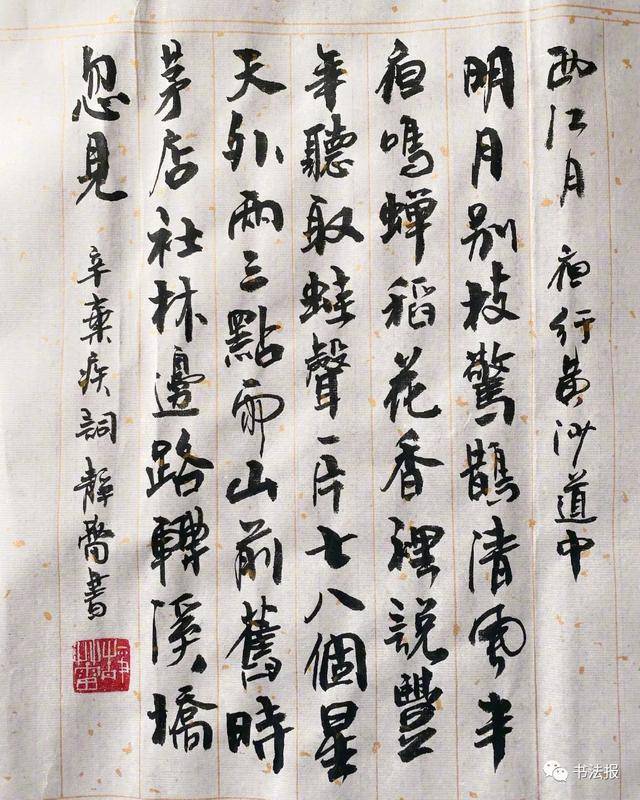 西江月 夜行黄沙道中
明月别枝驚鵲清風半
夜鳴蟬稻花香裡説豐
年聽取蛙聲一片七八個星
天外兩三點雨山前舊時
茅店社林邊路轉溪橋
忽見 辛棄疾詞 靜齋書
书法报